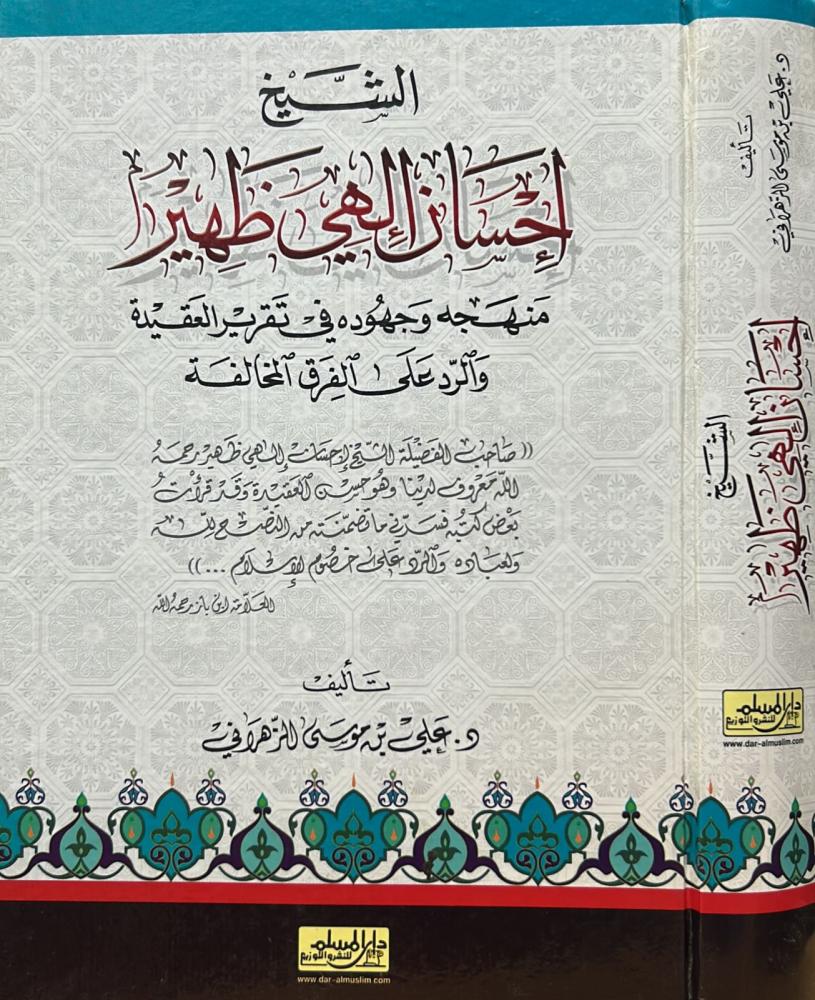 الشيخ
إحسان إلهي ظهير
منهجه وجهوده في تقرير العقيدة
والرد على الفرق المخالفة
(( صاحب الفضيلة الشيخ إحسان إلهي ظهير رحمه
الله معروف لدينا وهو حسن العقيدة وقد قرأت
بعض كتبه فسرني ما تضمنته من النصح لله
ولعباده والرد على خصوم الإسلام ... ))
العلامة ابن باز رحمه الله
تأليف
د. علي بن موسى الزهراني
دار المسلم
للنشر والتوزيع
www.dar-almuslim.com
تأليف
د. علي بن موسى الزهراني
الشيخ
إحسان إلهي ظهير
دار المسلم
للنشر والتوزيع
www.dar-almuslim.com